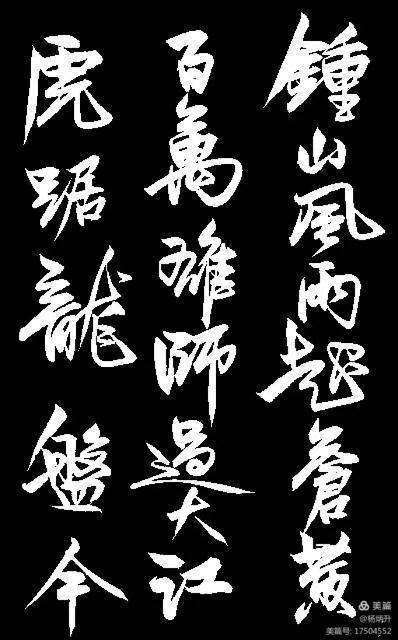 鍾山風雨起蒼黃
百萬雄師過大江
虎踞龍盤今
美篇
@杨炳升
美篇号: 17504552